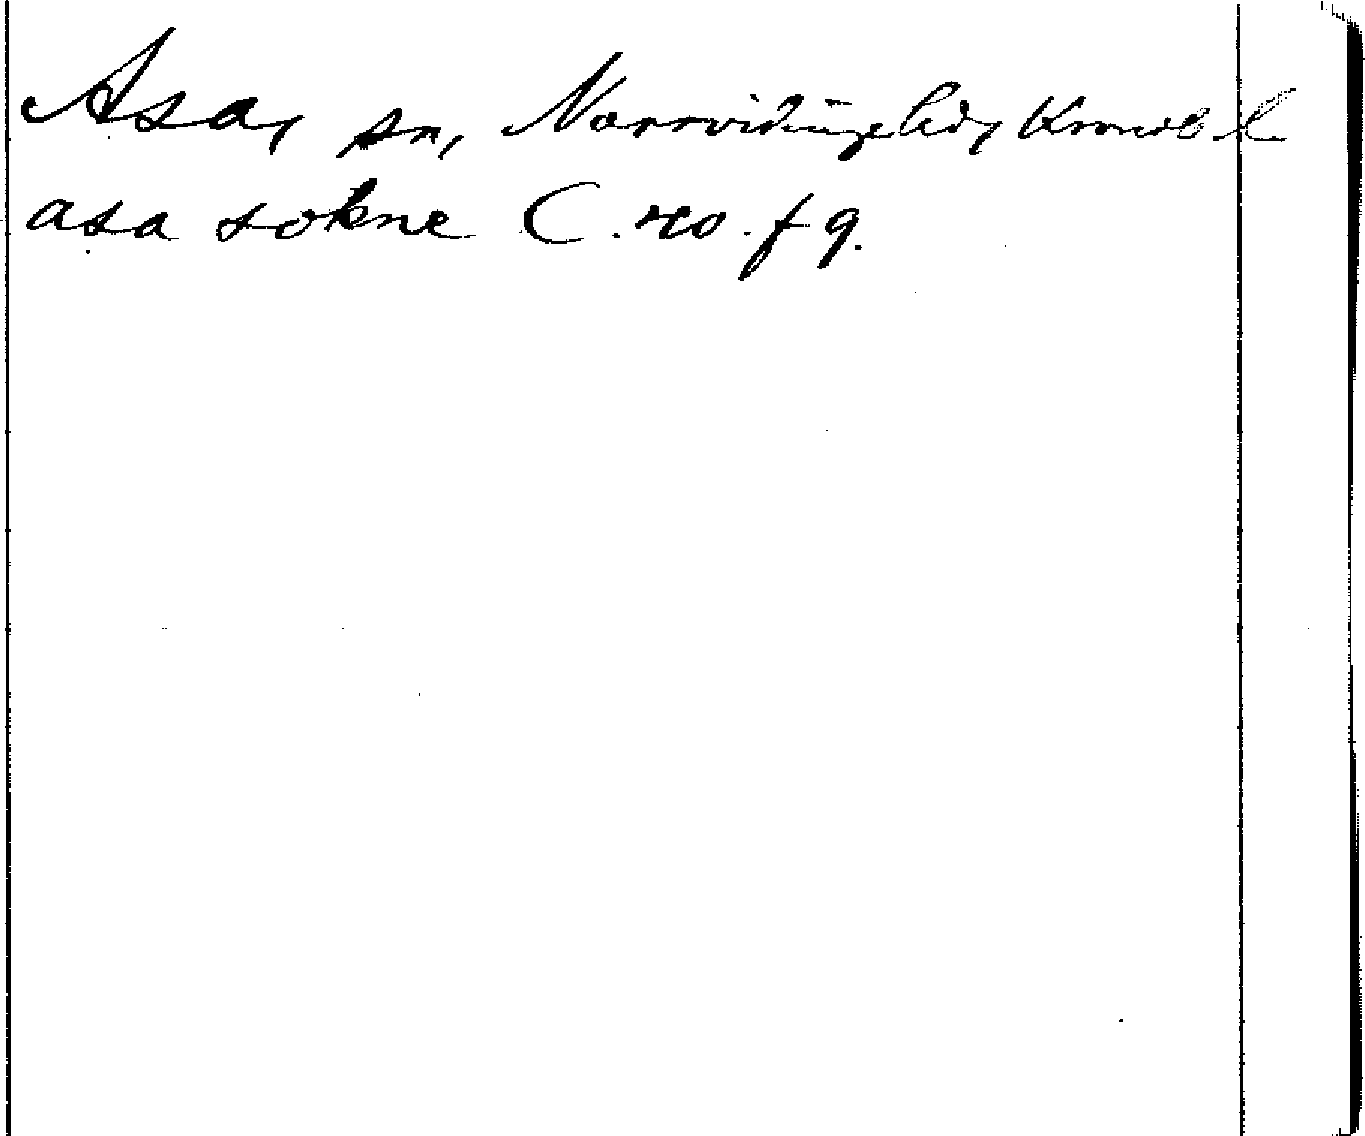 Asa, sn, Norrvidinge hd, Kronob l
asa sokne C. 20. f 9.